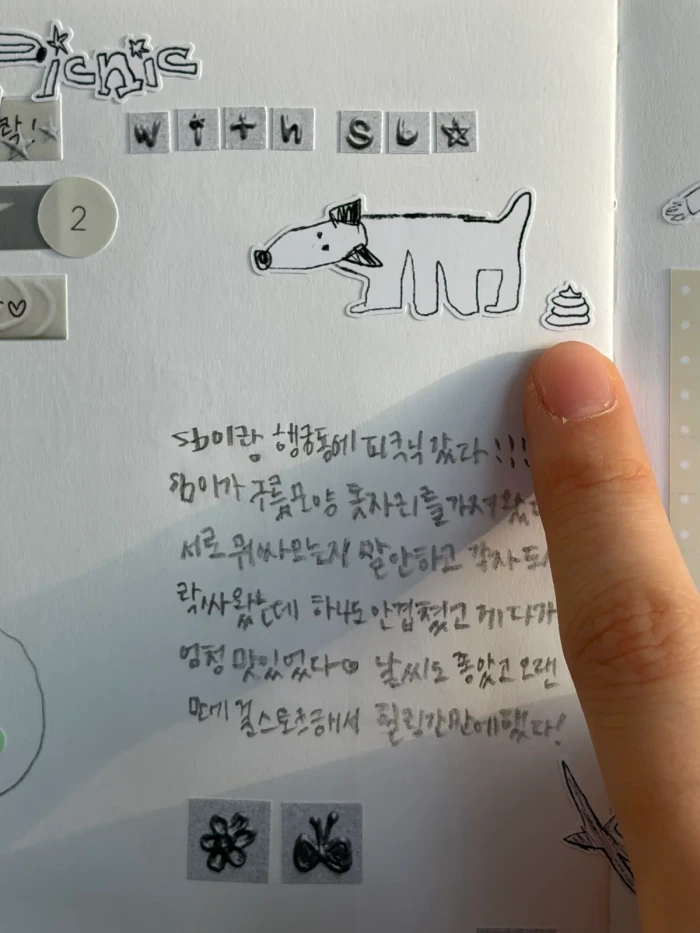 Picnic
락!
with SL
2
sb이랑 행궁동에 피크닉 갔다!!!
sb이가 구름모양 돗자리를 가져왔
서로 뭐싸오는지 말안하고 각자 도시
락싸왔는데 하나도 안겹쳤고 게다가
엄청 맛있었다♡ 날씨도 좋았고 오랜
만에 걸스토크해서 힐링